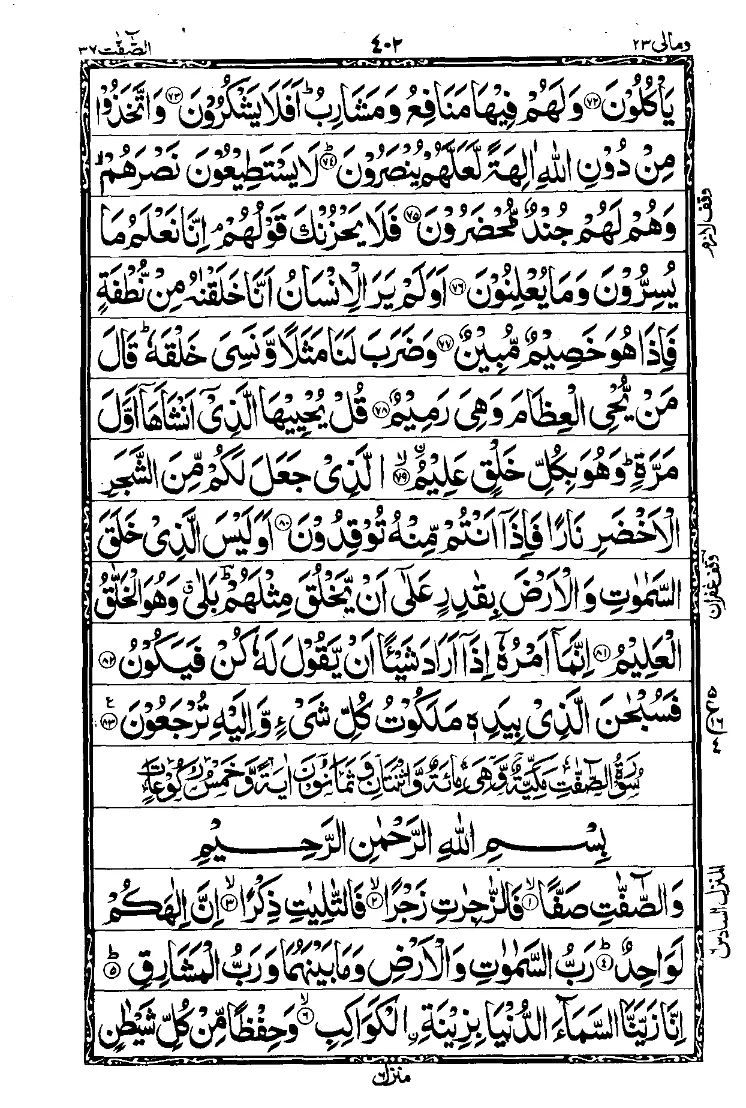 ومالی ٢٣
٤٠٢
الصّٰٓفّٰت ٣٧
يَاْكُلُوْنَ ﴿٧٢﴾ وَلَهُمْ فِيْهَا مَنَافِعُ وَمَشَارِبُ ؕ اَفَلَا يَشْكُرُوْنَ ﴿٧٣﴾ وَاتَّخَذُوْا
مِنْ دُوْنِ اللّٰهِ اٰلِهَةً لَّعَلَّهُمْ يُنْصَرُوْنَ ؕ﴿٧٤﴾ لَا يَسْتَطِيْعُوْنَ نَصْرَهُمْ ۙ
وَهُمْ لَهُمْ جُنْدٌ مُّحْضَرُوْنَ ﴿٧٥﴾ فَلَا يَحْزُنْكَ قَوْلُهُمْ ۘ اِنَّا نَعْلَمُ مَا
وقف لازم
يُسِرُّوْنَ وَمَا يُعْلِنُوْنَ ﴿٧٦﴾ اَوَلَمْ يَرَ الْاِنْسَانُ اَنَّا خَلَقْنٰهُ مِنْ نُّطْفَةٍ
فَاِذَا هُوَ خَصِيْمٌ مُّبِيْنٌ ﴿٧٧﴾ وَضَرَبَ لَنَا مَثَلًا وَّنَسِيَ خَلْقَهٗ ؕ قَالَ
مَنْ يُّحْيِ الْعِظَامَ وَهِيَ رَمِيْمٌ ﴿٧٨﴾ قُلْ يُحْيِيْهَا الَّذِيْٓ اَنْشَاَهَآ اَوَّلَ
مَرَّةٍ ؕ وَهُوَ بِكُلِّ خَلْقٍ عَلِيْمُ ۙ﴿٧٩﴾ الَّذِيْ جَعَلَ لَكُمْ مِّنَ الشَّجَرِ
الْاَخْضَرِ نَارًا فَاِذَآ اَنْتُمْ مِّنْهُ تُوْقِدُوْنَ ﴿٨٠﴾ اَوَلَيْسَ الَّذِيْ خَلَقَ
وقف غفران
السَّمٰوٰتِ وَالْاَرْضَ بِقٰدِرٍ عَلٰٓى اَنْ يَّخْلُقَ مِثْلَهُمْ ؕ بَلٰى ۗ وَهُوَ الْخَلّٰقُ
الْعَلِيْمُ ﴿٨١﴾ اِنَّمَآ اَمْرُهٗٓ اِذَآ اَرَادَ شَيْـًٔا اَنْ يَّقُوْلَ لَهٗ كُنْ فَيَكُوْنُ ﴿٨٢﴾
فَسُبْحٰنَ الَّذِيْ بِيَدِهٖ مَلَكُوْتُ كُلِّ شَيْءٍ وَّاِلَيْهِ تُرْجَعُوْنَ ﴿٨٣﴾ ع
سُوْرَةُ الصّٰٓفّٰتِ مَكِّيَّةٌ وَّهِيَ مِائَةٌ وَّاثْنَتَانِ وَثَمَانُوْنَ اٰيَةً وَّخَمْسُ رُكُوْعَاتٍ
بِسْمِ اللّٰهِ الرَّحْمٰنِ الرَّحِيْمِ
وَالصّٰٓفّٰتِ صَفًّا ۙ﴿١﴾ فَالزّٰجِرٰتِ زَجْرًا ۙ﴿٢﴾ فَالتّٰلِيٰتِ ذِكْرًا ۙ﴿٣﴾ اِنَّ اِلٰهَكُمْ
المنزل السادس
لَوَاحِدٌ ؕ﴿٤﴾ رَبُّ السَّمٰوٰتِ وَالْاَرْضِ وَمَا بَيْنَهُمَا وَرَبُّ الْمَشَارِقِ ؕ﴿٥﴾
اِنَّا زَيَّنَّا السَّمَآءَ الدُّنْيَا بِزِيْنَةِ ۨ الْكَوَاكِبِ ۙ﴿٦﴾ وَحِفْظًا مِّنْ كُلِّ شَيْطٰنٍ
منزل ٦